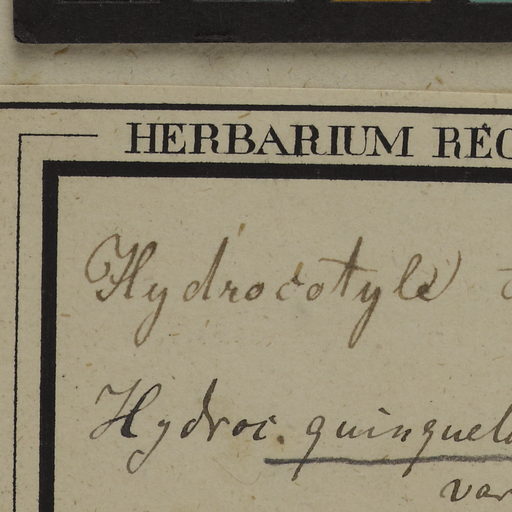 HERBARIUM REG
Hydrocotyle
Hydroc. quinquelo
var